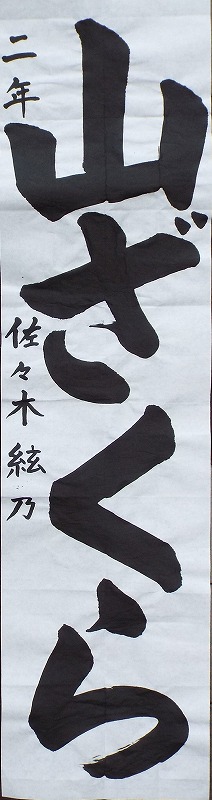 山ざくら
二年 佐々木絃乃